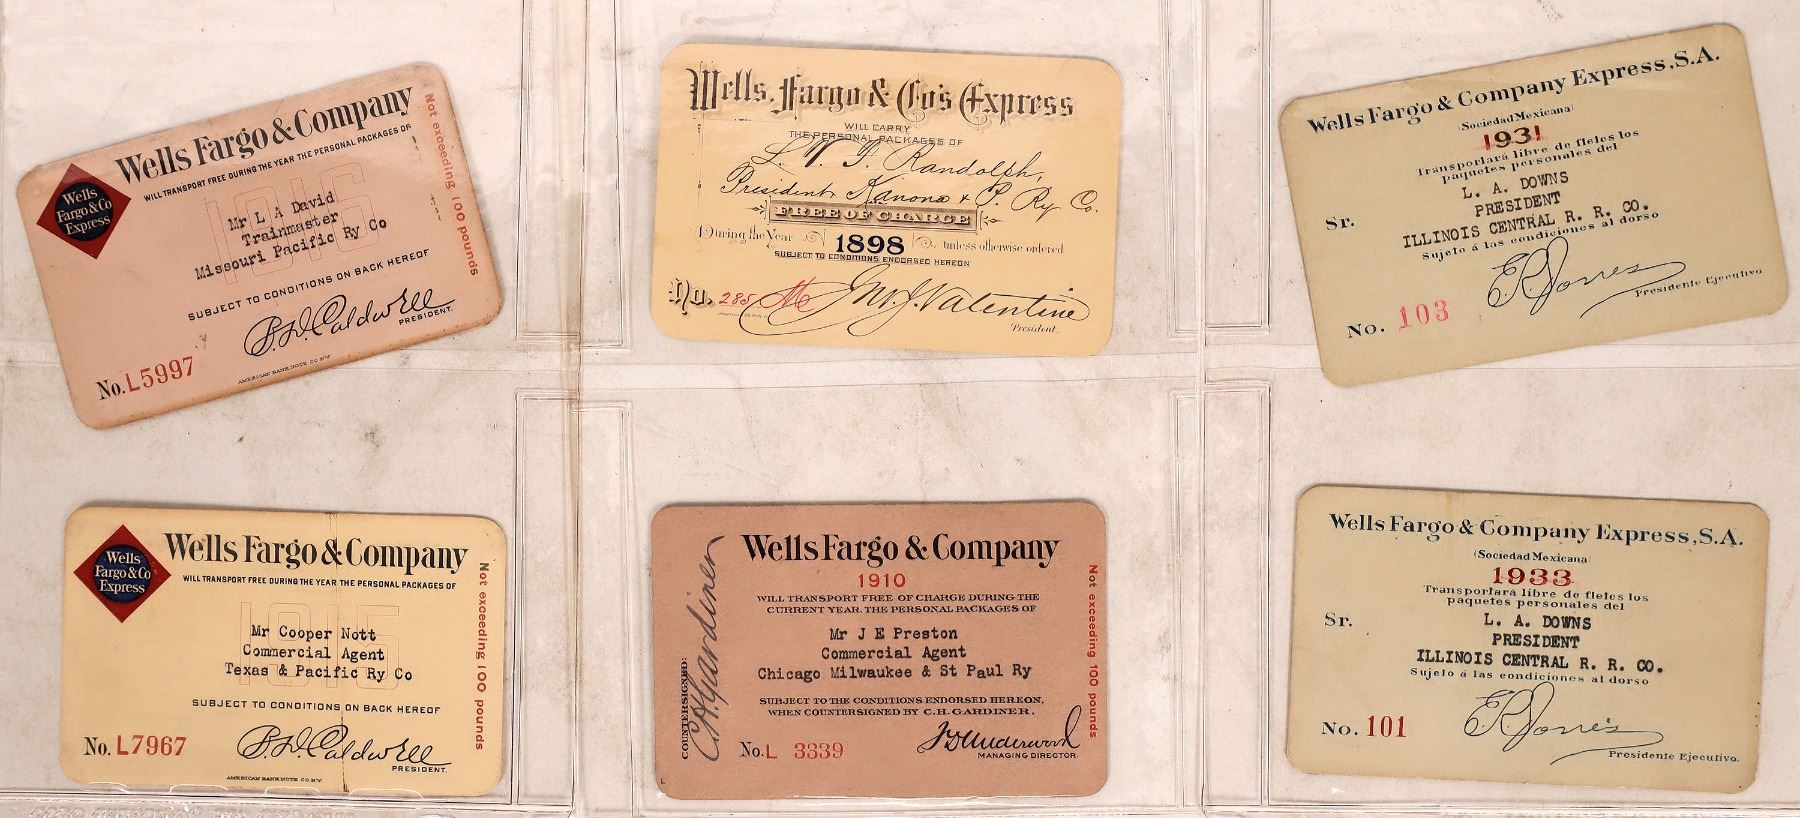 Wells Fargo & Company
WILL TRANSPORT FREE DURING THE YEAR THE PERSONAL PACKAGES OF
Wells
Fargo & Co
Express
1916
Mr L A David
Trainmaster
Missouri Pacific Ry Co
SUBJECT TO CONDITIONS ON BACK HEREOF
B. D. Caldwell
PRESIDENT.
No. L5997
AMERICAN BANK NOTE CO. N.Y.
Not exceeding 100 pounds
Wells, Fargo & Co's Express
WILL CARRY
THE PERSONAL PACKAGES OF
President, Kanona & P. Ry Co.
FREE OF CHARGE
During the Year 1898 unless otherwise ordered
SUBJECT TO CONDITIONS ENDORSED HEREON
No. 285
Jno. J. Valentine
President.
Wells Fargo & Company Express, S.A.
(Sociedad Mexicana)
1931
Transportará libre de fletes los
paquetes personales del
Sr.
L. A. DOWNS
PRESIDENT
ILLINOIS CENTRAL R. R. CO.
Sujeto á las condiciones al dorso
Presidente Ejecutivo.
No. 103
Wells Fargo & Company
WILL TRANSPORT FREE DURING THE YEAR THE PERSONAL PACKAGES OF
Wells
Fargo & Co
Express
1915
Mr Cooper Nott
Commercial Agent
Texas & Pacific Ry Co
SUBJECT TO CONDITIONS ON BACK HEREOF
No. L7967
B. D. Caldwell
PRESIDENT.
AMERICAN BANK NOTE CO. N.Y.
Not exceeding 100 pounds
Wells Fargo & Company
1910
WILL TRANSPORT FREE OF CHARGE DURING THE
CURRENT YEAR, THE PERSONAL PACKAGES OF
Mr J E Preston
Commercial Agent
Chicago Milwaukee & St Paul Ry
SUBJECT TO THE CONDITIONS ENDORSED HEREON,
WHEN COUNTERSIGNED BY C. H. GARDINER.
No. L 3339
MANAGING DIRECTOR.
COUNTERSIGNED: C H Gardiner
Not exceeding 100 pounds
Wells Fargo & Company Express, S.A.
(Sociedad Mexicana)
1933
Transportará libre de fletes los
paquetes personales del
Sr.
L. A. DOWNS
PRESIDENT
ILLINOIS CENTRAL R. R. CO.
Sujeto á las condiciones al dorso
No. 101
Presidente Ejecutivo.